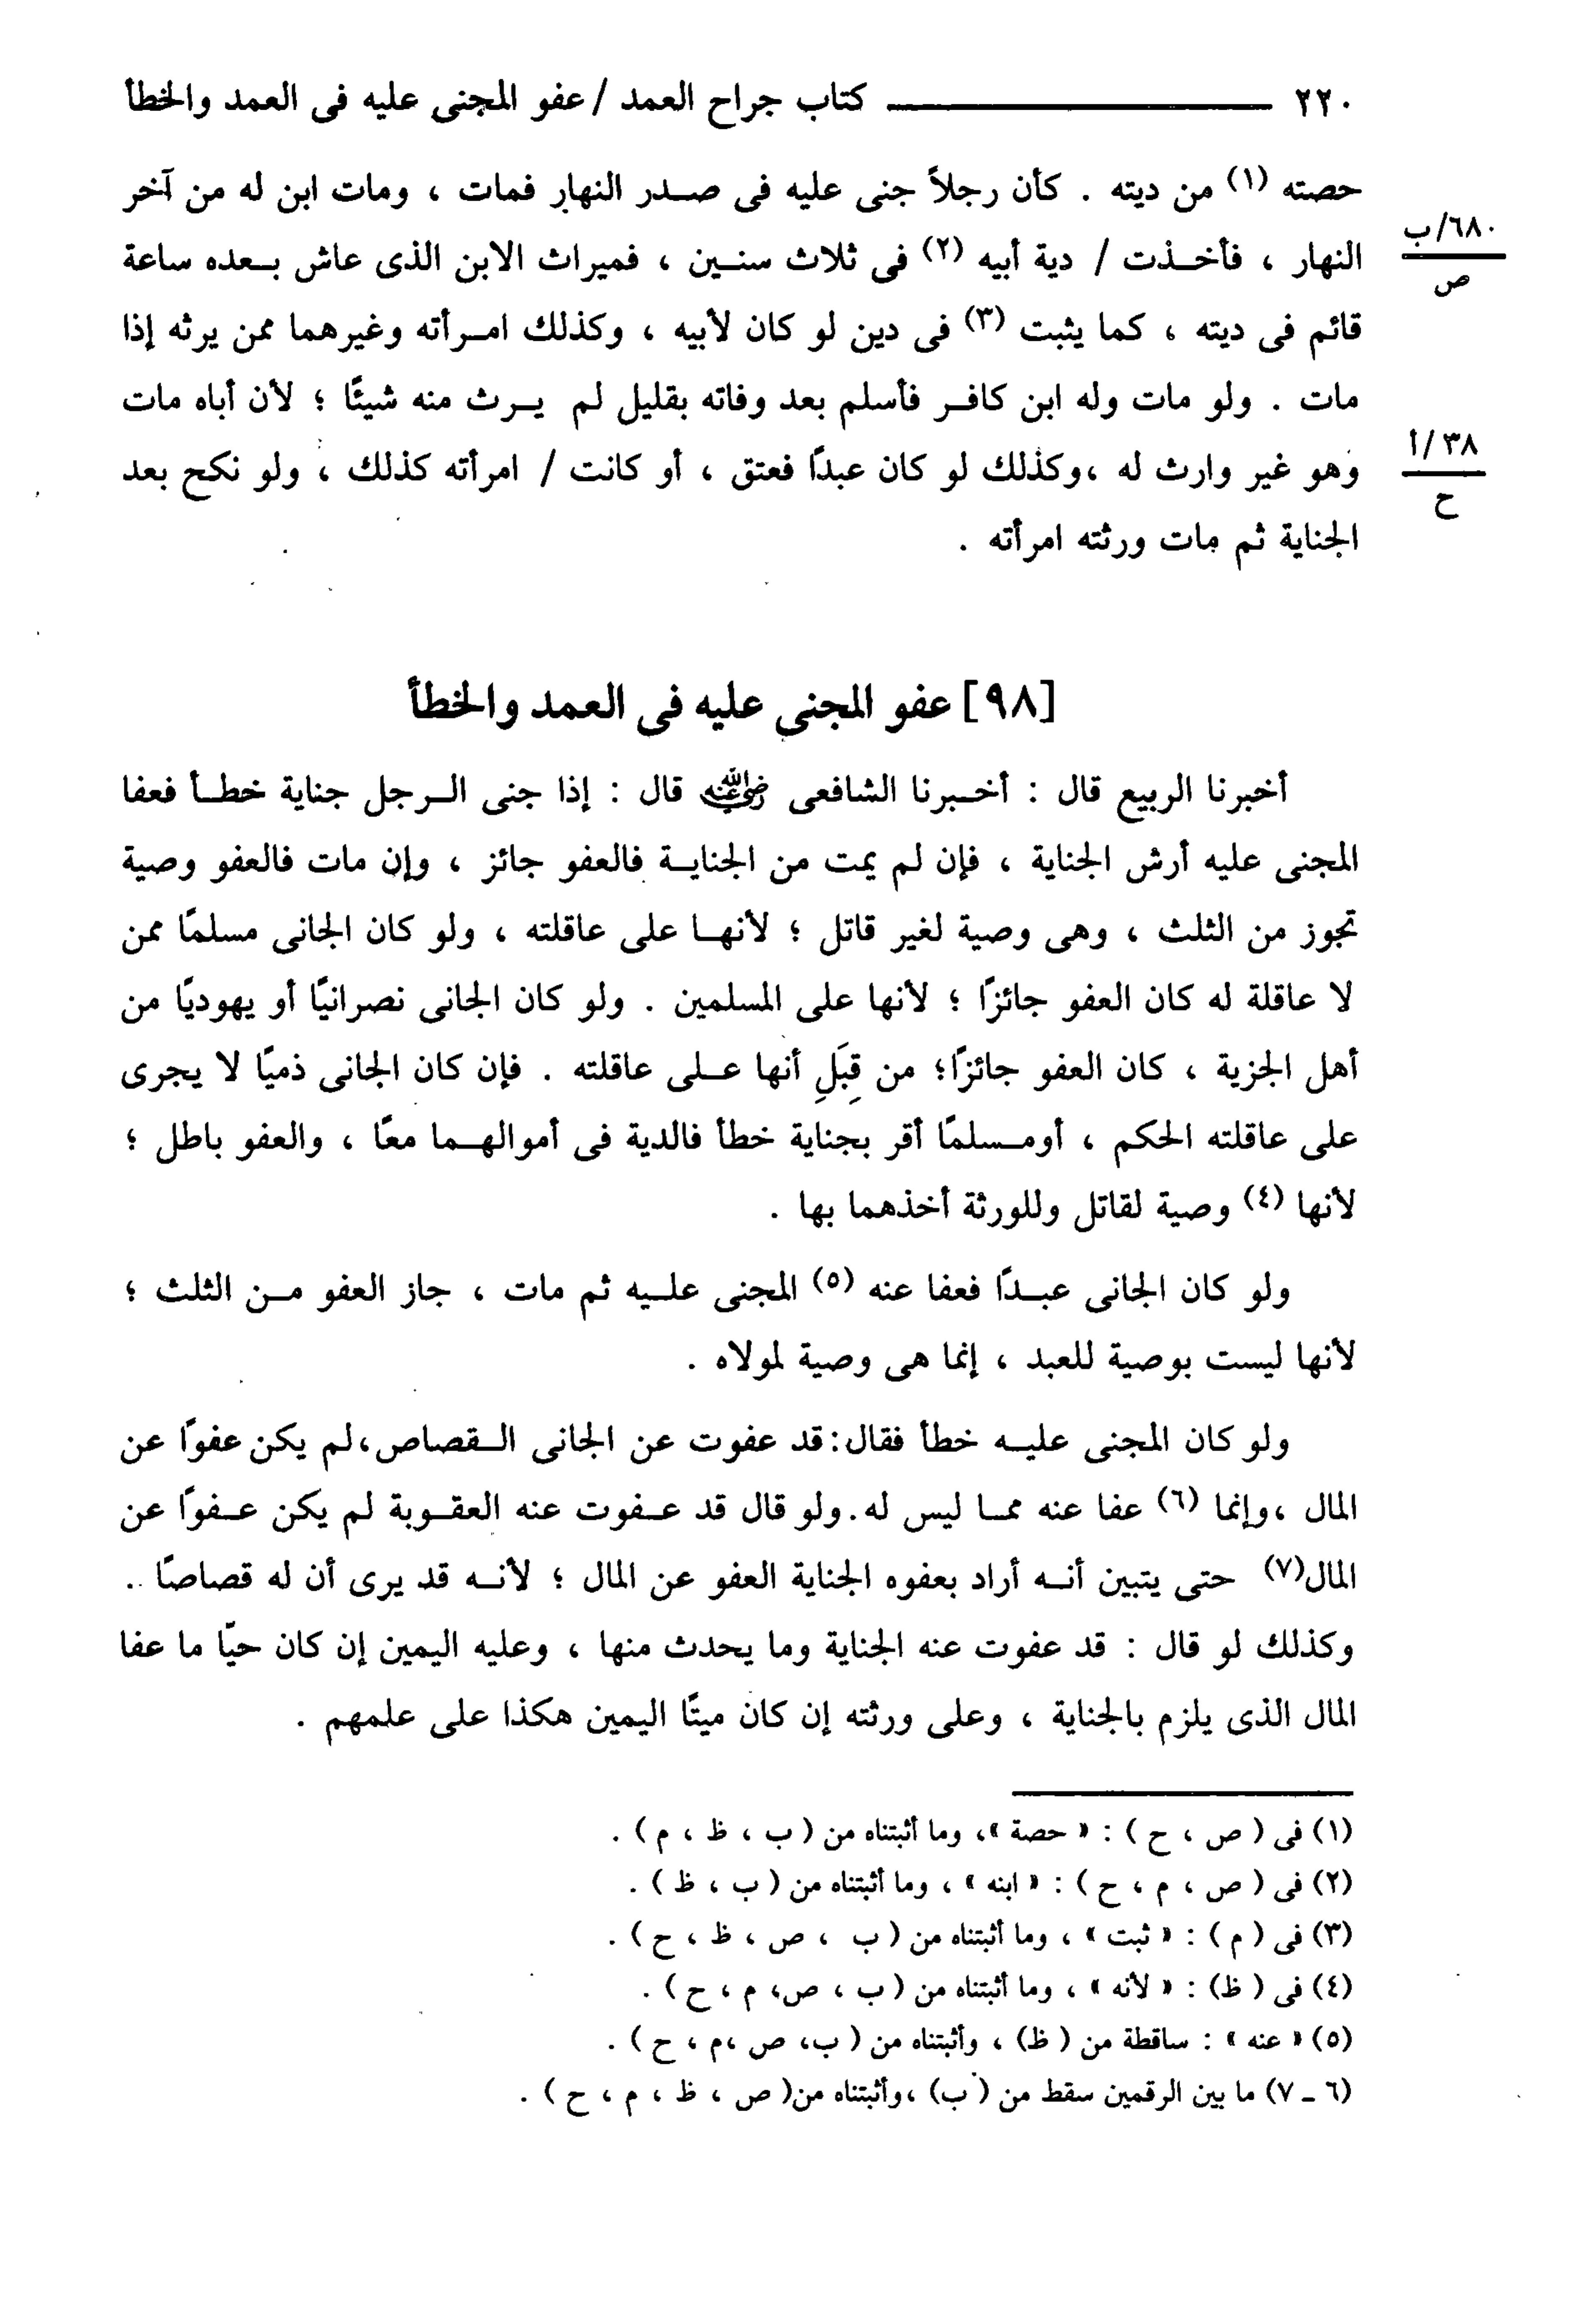 ٢٢٠ كتاب جراح العمد / عفو المجنى عليه فى العمد والخطأ
حصته (١) من ديته . كأن رجلاً جنى عليه فى صدر النهار فمات ، ومات ابن له من آخر
النهار ، فأخذت / دية أبيه (٢) فى ثلاث سنين ، فميراث الابن الذى عاش بعده ساعة
٦٨٠/ب
ص
قائم فى ديته ، كما يثبت (٣) فى دين لو كان لأبيه ، وكذلك امرأته وغيرهما ممن يرثه إذا
مات . ولو مات وله ابن كافر فأسلم بعد وفاته بقليل لم يرث منه شيئًا ؛ لأن أباه مات
وهو غير وارث له ،وكذلك لو كان عبدًا فعتق ، أو كانت / امرأته كذلك ، ولو نكح بعد
٣٨/أ
ح
الجناية ثم مات ورثته امرأته .
[٩٨] عفو المجنى عليه فى العمد والخطأ
أخبرنا الربيع قال : أخبرنا الشافعى رضي الله عنه قال : إذا جنى الرجل جناية خطأ فعفا
المجنى عليه أرش الجناية ، فإن لم يمت من الجناية فالعفو جائز ، وإن مات فالعفو وصية
تجوز من الثلث ، وهى وصية لغير قاتل ؛ لأنها على عاقلته ، ولو كان الجانى مسلمًا ممن
لا عاقلة له كان العفو جائزًا ؛ لأنها على المسلمين . ولو كان الجانى نصرانيًا أو يهوديًا من
أهل الجزية ، كان العفو جائزًا؛ من قِبَلِ أنها على عاقلته . فإن كان الجانى ذميًا لا يجرى
على عاقلته الحكم ، أومسلمًا أقر بجناية خطأ فالدية فى أموالهما معًا ، والعفو باطل ؛
لأنها (٤) وصية لقاتل وللورثة أخذهما بها .
ولو كان الجانى عبدًا فعفا عنه (٥) المجنى عليه ثم مات ، جاز العفو من الثلث ؛
لأنها ليست بوصية للعبد ، إنما هى وصية لمولاه .
ولو كان المجنى عليه خطأ فقال:قد عفوت عن الجانى القصاص،لم يكن عفوًا عن
المال ،وإنما (٦) عفا عنه مما ليس له.ولو قال قد عفوت عنه العقوبة لم يكن عفوًا عن
المال(٧) حتى يتبين أنه أراد بعفوه الجناية العفو عن المال ؛ لأنه قد يرى أن له قصاصًا .
وكذلك لو قال : قد عفوت عنه الجناية وما يحدث منها ، وعليه اليمين إن كان حيًا ما عفا
المال الذى يلزم بالجناية ، وعلى ورثته إن كان ميتًا اليمين هكذا على علمهم .
(١) فى ( ص ، ح ) : « حصة »، وما أثبتناه من ( ب ، ظ ، م ) .
(٢) فى ( ص ، م ، ح ) : « ابنه » ، وما أثبتناه من ( ب ، ظ ) .
(٣) فى ( م ) : « ثبت » ، وما أثبتناه من ( ب ، ص ، ظ ، ح ) .
(٤) فى ( ظ) : « لأنه » ، وما أثبتناه من ( ب ، ص، م ، ح ) .
(٥) « عنه » : ساقطة من ( ظ) ، وأثبتناه من ( ب، ص ،م ، ح ) .
(٦ ـ ٧) ما بين الرقمين سقط من ( ب) ،وأثبتناه من( ص ، ظ ، م ، ح ) .